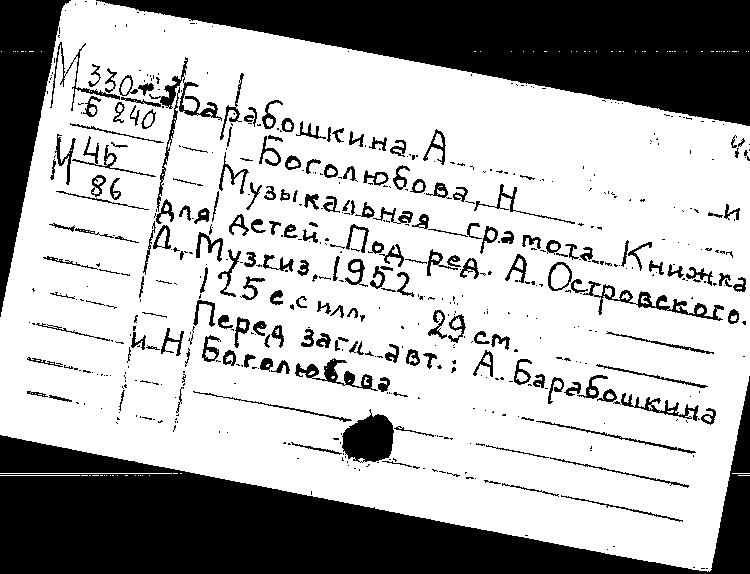 М 330.+3
Б 240
М 45
86
Барабошкина, А
Боголюбова, Н и
Музыкальная грамота Книжка
для детей. Под ред. А. Островского.
Л., Музгиз, 1952
125 с. с илл. 29 см.
Перед загл. авт.: А. Барабошкина
и Н Боголюбова